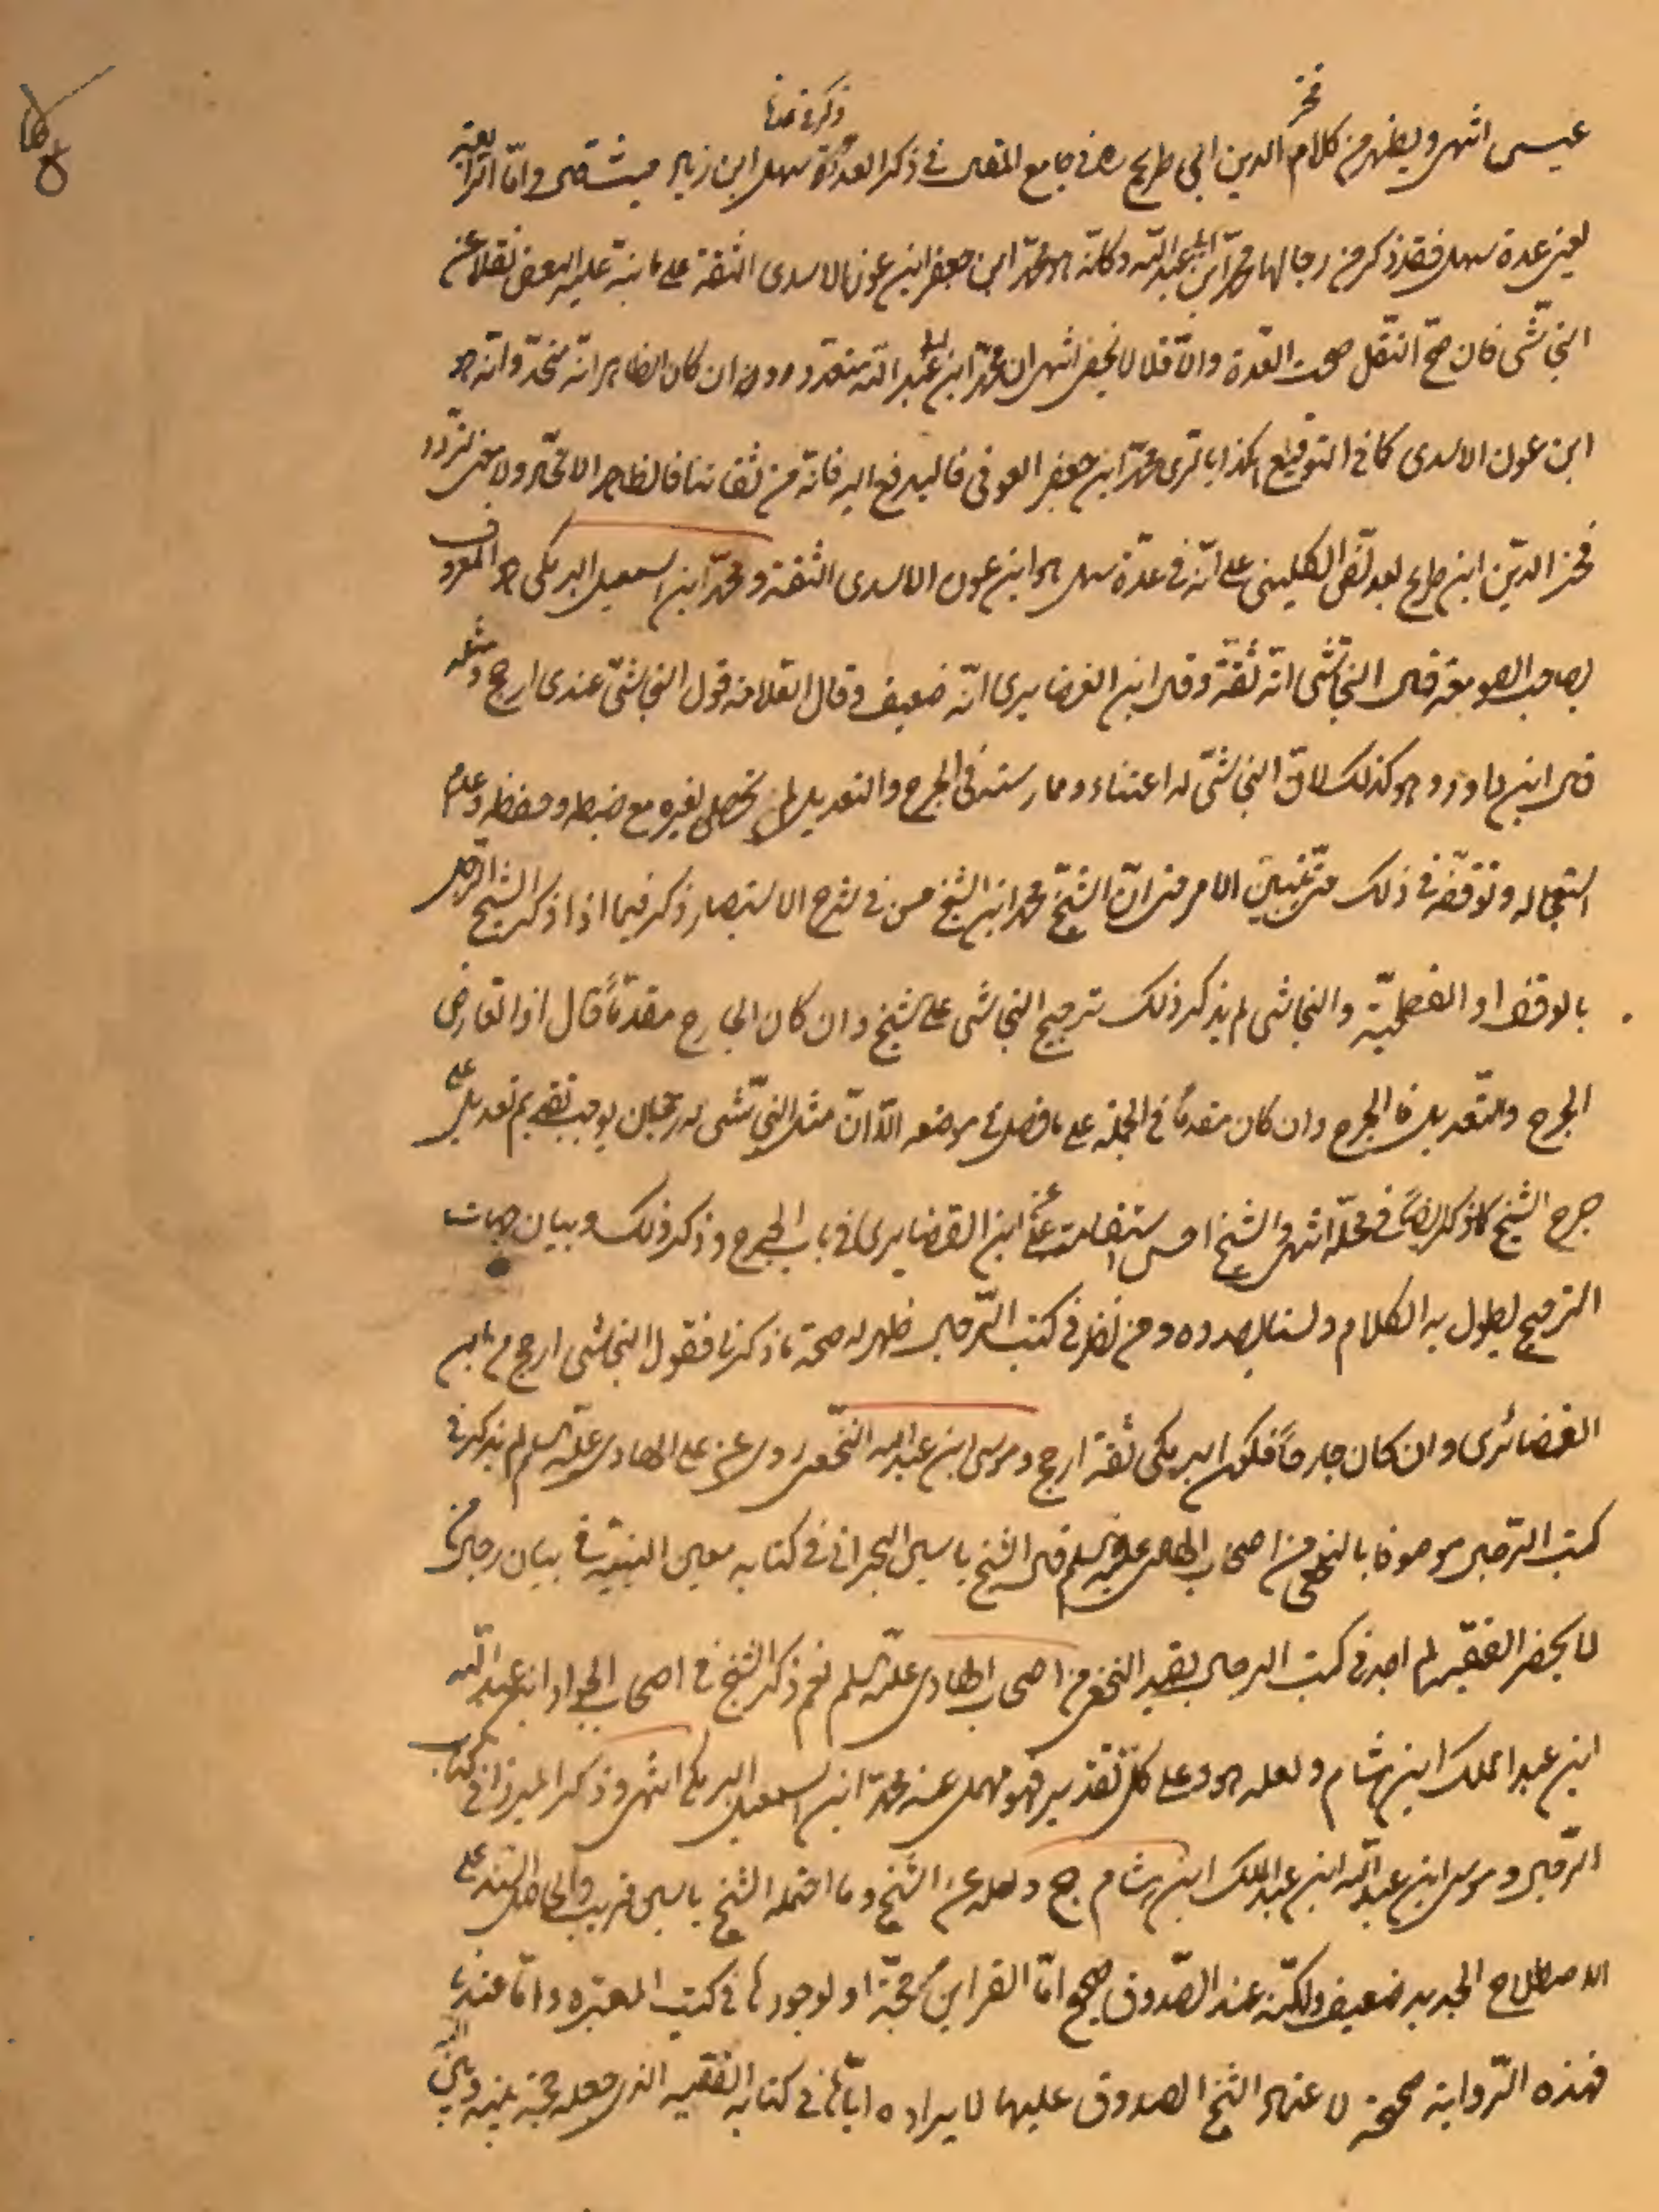 عيسى انتهى ويظهر من كلام فخر الدين ابن طريح ره في جامع المقال في ذكر العدة سهل ابن زياد حيث قال واما الرابعة
يعني عدة سهل فقد ذكر من رجالها محمد ابن ابي عبد الله وكانه هو محمد ابن جعفر ابن عون الاسدي الثقة على ما نبه عليه البعض نقلا عن
النجاشي فان صح النقل صحت العدة والا فلا لا يخفى انتهى ان محمد ابن ابي عبد الله متعدد وان كان الظاهر انه متحد وانه هو
ابن عون الاسدي كما في التوقيع هكذا محمد ابن جعفر العوفي فاليدفع اليه فانه من ثقاتنا فالظاهر الاتحاد ولا معنى لتردد
فخر الدين ابن طريح بعد نص الكليني على انه في عدة سهل هو ابن عون الاسدي الثقة ومحمد ابن اسمعيل البرمكي هو المعروف
بصاحب الصومعة قال النجاشي انه ثقة وقال ابن الغضايري انه ضعيف وقال العلامة قول النجاشي عندي ارجح ومثله
قال ابن داود وهو كذلك لان النجاشي له اعتناء وممارسة في الجرح والتعديل لم يحصل لغيره مع ضبطه وحفظه وعدم
استعجاله وتوقفه في ذلك حتى يتبين الامر حتى ان الشيخ محمد ابن الشيخ حسن في شرح الاستبصار ذكر فيما اذا ذكر الشيخ الرجل
بالوقف او الفطحية والنجاشي لم يذكر ذلك ترجيح النجاشي على الشيخ وان كان الجارح مقدما قال اذا تعارض
الجرح والتعديل فالجرح وان كان مقدما في الجملة على ما فصل في موضعه الا ان مثل النجاشي له رجحان يوجب تقديم تعديله على
جرح الشيخ كما ذكر ايضا في محله انتهى والشيخ احسن استقامت عن ابن الغضايري في باب الجرح وذكر ذلك وبيان جهات
الترجيح يطول به الكلام ولسنا بصدده ومن نظر في كتب الرجال ظهر له صحة ما ذكرنا فقول النجاشي ارجح من ابن
الغضائري وان كان جارحا فكون البرمكي ثقة ارجح وموسى ابن عبد الله النخعي روى عن علي الهادي عليه السلم لم يذكر في
كتب الرجال موصوفا بالنخعي من اصحاب الهادي عليه السلم قال الشيخ ياسين البحراني في كتابه معين النبيه في بيان رجال من
لا يحضر الفقيه لم اجد في كتب الرجال بقيد النخعي من اصحاب الهادي عليه السلم نعم ذكر الشيخ في اصحاب الجواد ابن عبد الله
ابن عبد الملك ابن هشام ولعله هو وعلى كل تقدير فهو مهمل عنه محمد ابن اسمعيل البرمكي انتهى وذكر الميرزا في كتاب
الرجال وموسى ابن عبد الله ابن عبد الملك ابن هشام جح ولعله عن الشيخ وما احتمله الشيخ ياسين قريب والحاصل السند على
الاصطلاح الجديد ضعيف ولكنه عند الصدوق صحيح اما القراين صحته او لوجودها في كتب المعتبره واما عندنا
فهذه الرواية صحيحة لاعتماد الشيخ الصدوق عليها لايراده اياها في كتابه الفقيه الذي جعله حجة بينه وبين الله